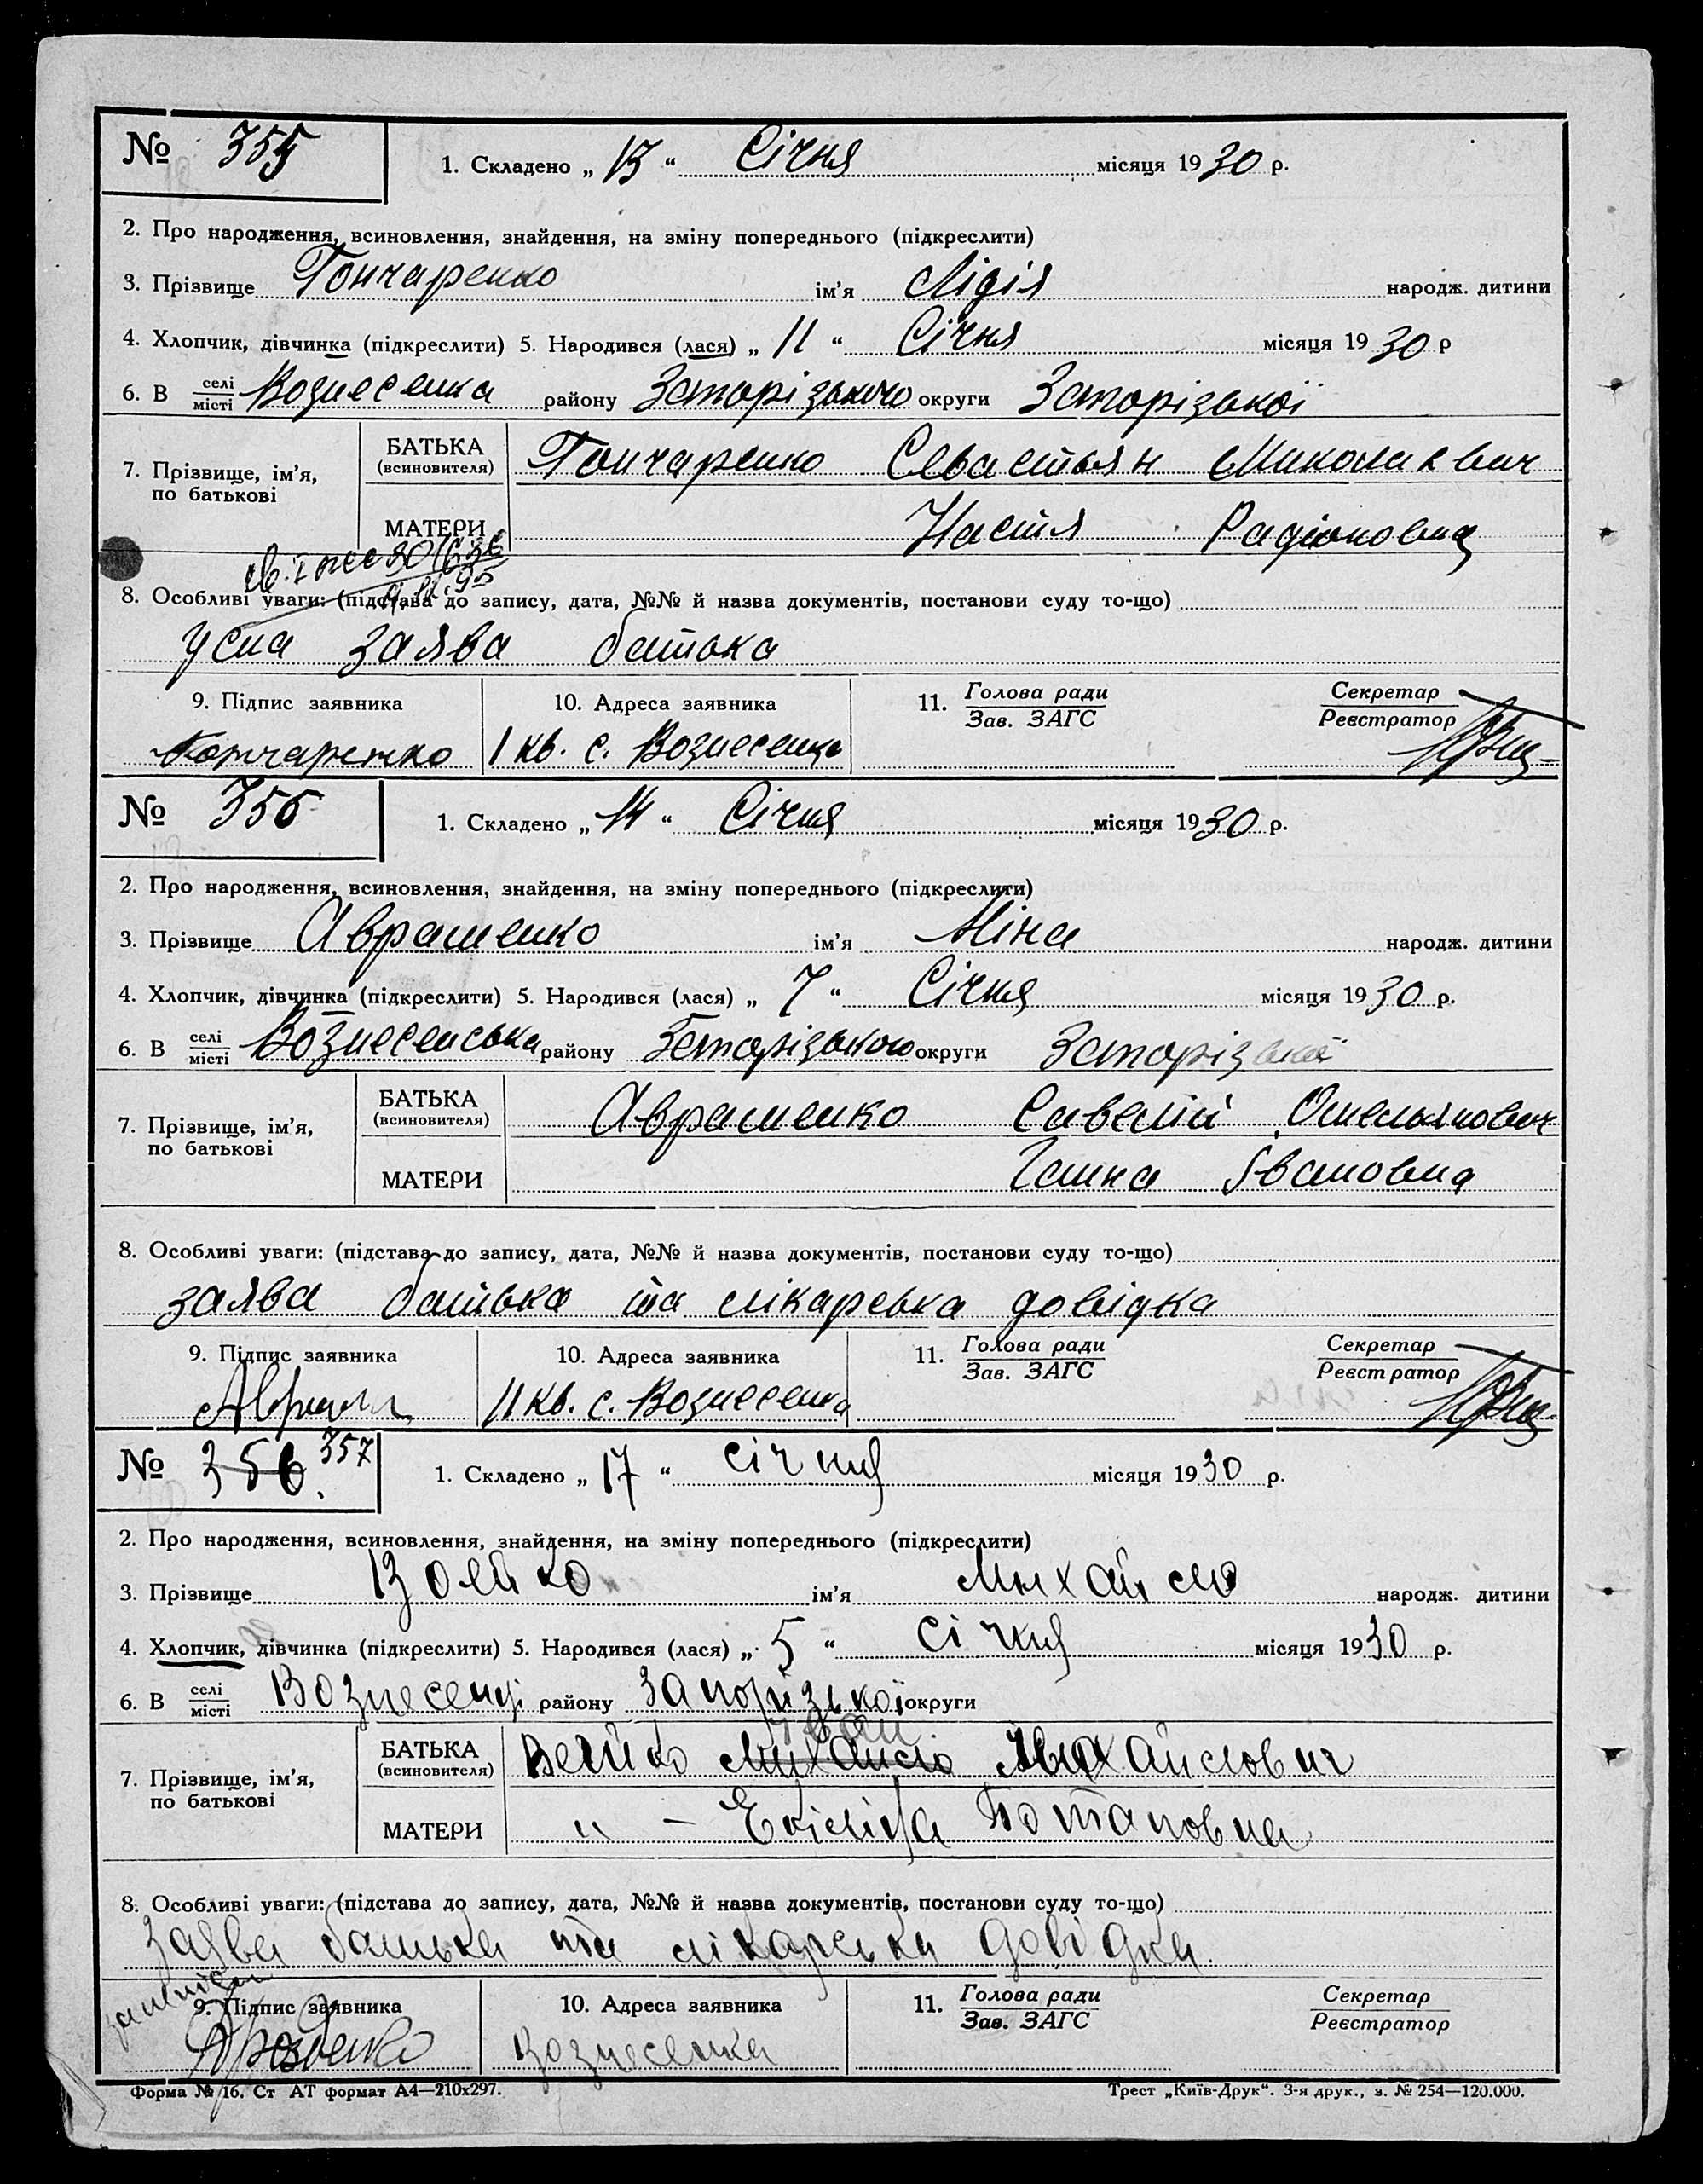 № 355 1. Складено „ 13 “ Січня місяця 1930 р.
2. Про народження, всиновлення, знайдення, на зміну попереднього (підкреслити)
3. Прізвище Гончаренко ім'я Лідія народж. дитини
4. Хлопчик, дівчинка (підкреслити) 5. Народився (лася) „ 11 “ Січня місяця 1930 р
6. В селі/місті Вознесенка району Запорізького округи Запорізької
7. Прізвище, ім'я, по батькові БАТЬКА (всиновителя) Гончаренко Севастьян Миколаевич
МАТЕРИ Настя Радіоновна
8. Особливі уваги: (підстава до запису, дата, №№ й назва документів, постанови суду то-що)
Усна заява батька
9. Підпис заявника 10. Адреса заявника 11. Голова ради/Зав. ЗАГС Секретар/Реєстратор
Гончаренко 1 кв. с. Вознесенка
№ 356 1. Складено „ 14 “ Січня місяця 1930 р.
2. Про народження, всиновлення, знайдення, на зміну попереднього (підкреслити)
3. Прізвище Авраменко ім'я Ніна народж. дитини
4. Хлопчик, дівчинка (підкреслити) 5. Народився (лася) „ 7 “ Січня місяця 1930 р.
6. В селі/місті Вознесенська району Запорізького округи Запорізької
7. Прізвище, ім'я, по батькові БАТЬКА (всиновителя) Авраменко Савелій Омельянович
МАТЕРИ Ганна Івановна
8. Особливі уваги: (підстава до запису, дата, №№ й назва документів, постанови суду то-що)
заява батька та лікарська довідка
9. Підпис заявника 10. Адреса заявника 11. Голова ради/Зав. ЗАГС Секретар/Реєстратор
11 кв. с. Вознесенка
№ 356. 357 1. Складено „ 17 “ січня місяця 1930 р.
2. Про народження, всиновлення, знайдення, на зміну попереднього (підкреслити)
3. Прізвище ім'я Михайло народж. дитини
4. Хлопчик, дівчинка (підкреслити) 5. Народився (лася) „ 5 “ січня місяця 1930 р.
6. В селі/місті Вознесенці району Запорізької округи
Іван
7. Прізвище, ім'я, по батькові БАТЬКА (всиновителя) Вейко Михайло Михайлович
МАТЕРИ „ — Потаповна
8. Особливі уваги: (підстава до запису, дата, №№ й назва документів, постанови суду то-що)
Заява батька та лікарська довідка.
9. Підпис заявника 10. Адреса заявника 11. Голова ради/Зав. ЗАГС Секретар/Реєстратор
Вознесенка
Форма № 16. Ст АТ формат А4—210х297. Трест „Київ-Друк“. 3-я друк., з. № 254—120.000.